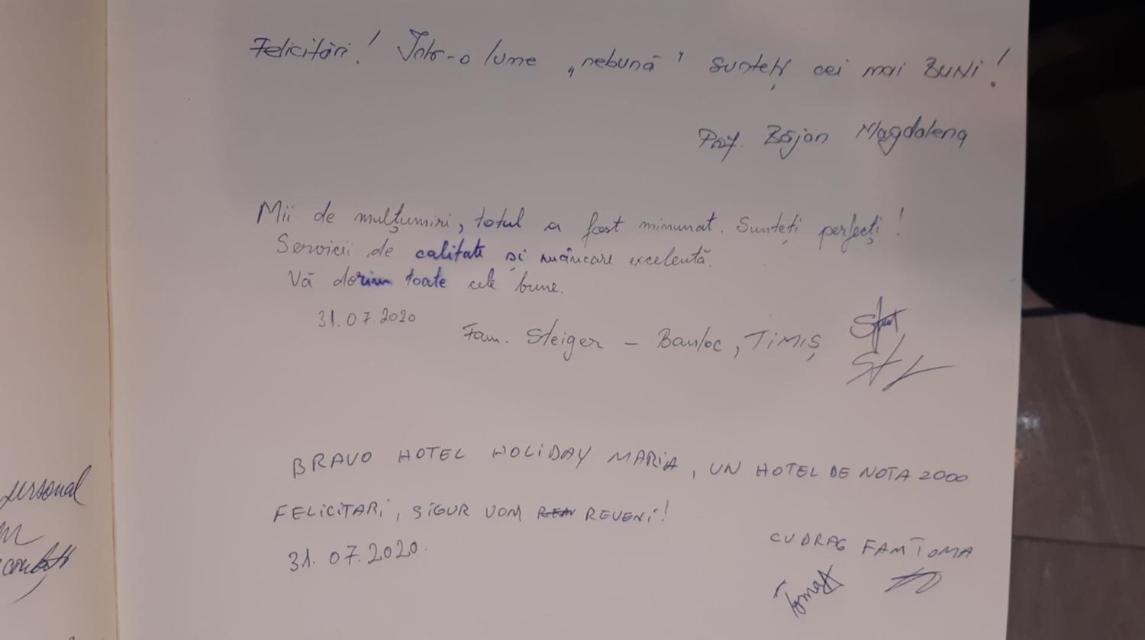 Felicitări! Într-o lume „nebună” sunteți cei mai BUNI!
Prof. Băjan Magdalena
Mii de mulțumiri, totul a fost minunat. Sunteți perfecți!
Servicii de calitate și mâncare excelentă.
Vă dorim toate cele bune.
31.07.2020
Fam. Steiger – Banloc, TIMIȘ
BRAVO HOTEL HOLIDAY MARIA, UN HOTEL DE NOTA 2000
FELICITARI, SIGUR VOM REVENI!
31.07.2020.
CU DRAG FAM TOMA
personal